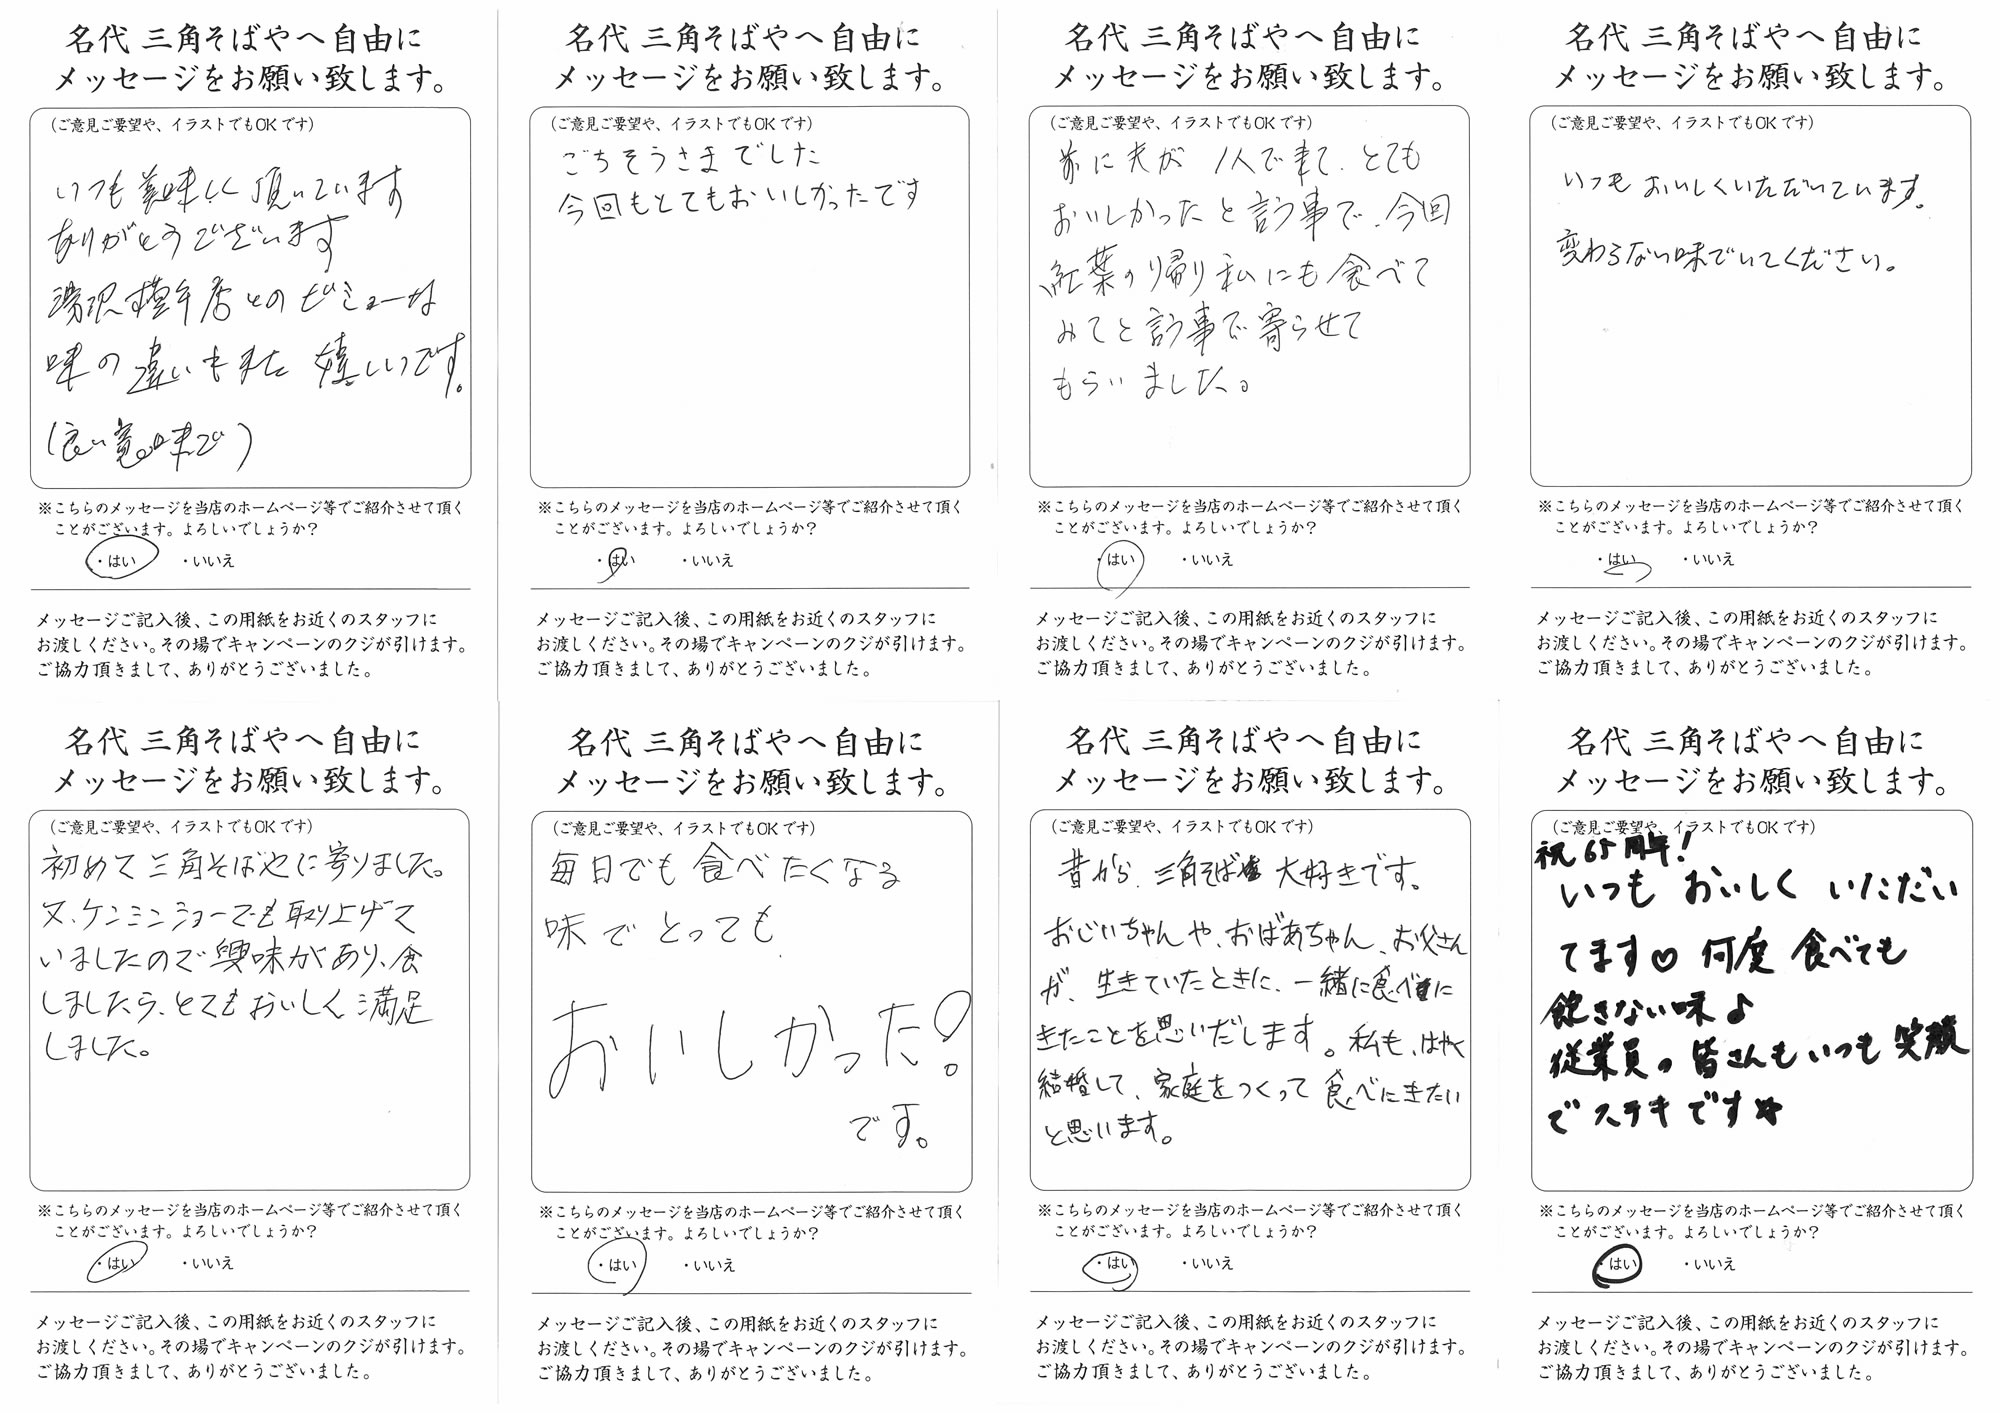 名代 三角そばやへ自由に
メッセージをお願い致します。
(ご意見ご要望や、イラストでもOKです)
いつも美味しく頂いています
ありがとうございます
湯沢横手店とのビミョーな
味の違いもまた嬉しいです。
(良い意味で)
※こちらのメッセージを当店のホームページ等でご紹介させて頂く
ことがございます。よろしいでしょうか?
・はい ・いいえ
メッセージご記入後、この用紙をお近くのスタッフに
お渡しください。その場でキャンペーンのクジが引けます。
ご協力頂きまして、ありがとうございました。
名代 三角そばやへ自由に
メッセージをお願い致します。
(ご意見ご要望や、イラストでもOKです)
ごちそうさまでした
今回もとてもおいしかったです
※こちらのメッセージを当店のホームページ等でご紹介させて頂く
ことがございます。よろしいでしょうか?
・はい ・いいえ
メッセージご記入後、この用紙をお近くのスタッフに
お渡しください。その場でキャンペーンのクジが引けます。
ご協力頂きまして、ありがとうございました。
名代 三角そばやへ自由に
メッセージをお願い致します。
(ご意見ご要望や、イラストでもOKです)
前に夫が 1人で来て、とても
おいしかったと言う事で、今回
紅葉の帰り私にも食べて
みてと言う事で寄らせて
もらいました。
※こちらのメッセージを当店のホームページ等でご紹介させて頂く
ことがございます。よろしいでしょうか?
・はい ・いいえ
メッセージご記入後、この用紙をお近くのスタッフに
お渡しください。その場でキャンペーンのクジが引けます。
ご協力頂きまして、ありがとうございました。
名代 三角そばやへ自由に
メッセージをお願い致します。
(ご意見ご要望や、イラストでもOKです)
いつも おいしくいただいています。
変わらない味でいてください。
※こちらのメッセージを当店のホームページ等でご紹介させて頂く
ことがございます。よろしいでしょうか?
・はい ・いいえ
メッセージご記入後、この用紙をお近くのスタッフに
お渡しください。その場でキャンペーンのクジが引けます。
ご協力頂きまして、ありがとうございました。
名代 三角そばやへ自由に
メッセージをお願い致します。
(ご意見ご要望や、イラストでもOKです)
初めて三角そばやに寄りました。
又、ケンミンショーでも取り上げて
いましたので興味があり、食
しましたら、とてもおいしく満足
しました。
※こちらのメッセージを当店のホームページ等でご紹介させて頂く
ことがございます。よろしいでしょうか?
・はい ・いいえ
メッセージご記入後、この用紙をお近くのスタッフに
お渡しください。その場でキャンペーンのクジが引けます。
ご協力頂きまして、ありがとうございました。
名代 三角そばやへ自由に
メッセージをお願い致します。
(ご意見ご要望や、イラストでもOKです)
毎日でも食べたくなる
味でとっても
おいしかった!
です。
※こちらのメッセージを当店のホームページ等でご紹介させて頂く
ことがございます。よろしいでしょうか?
・はい ・いいえ
メッセージご記入後、この用紙をお近くのスタッフに
お渡しください。その場でキャンペーンのクジが引けます。
ご協力頂きまして、ありがとうございました。
名代 三角そばやへ自由に
メッセージをお願い致します。
(ご意見ご要望や、イラストでもOKです)
昔から、三角そば 大好きです。
おじいちゃんや、おばあちゃん、お父さん
が、生きていたときに、一緒に食べに
きたことを思いだします。私も、はやく
結婚して、家庭をつくって 食べにきたい
と思います。
※こちらのメッセージを当店のホームページ等でご紹介させて頂く
ことがございます。よろしいでしょうか?
・はい ・いいえ
メッセージご記入後、この用紙をお近くのスタッフに
お渡しください。その場でキャンペーンのクジが引けます。
ご協力頂きまして、ありがとうございました。
名代 三角そばやへ自由に
メッセージをお願い致します。
(ご意見ご要望や、イラストでもOKです)
祝65周年!
いつも おいしく いただい
てます♡ 何度 食べても
飽きない味♪
従業員の皆さんもいつも笑顔
でステキです☆
※こちらのメッセージを当店のホームページ等でご紹介させて頂く
ことがございます。よろしいでしょうか?
・はい ・いいえ
メッセージご記入後、この用紙をお近くのスタッフに
お渡しください。その場でキャンペーンのクジが引けます。
ご協力頂きまして、ありがとうございました。